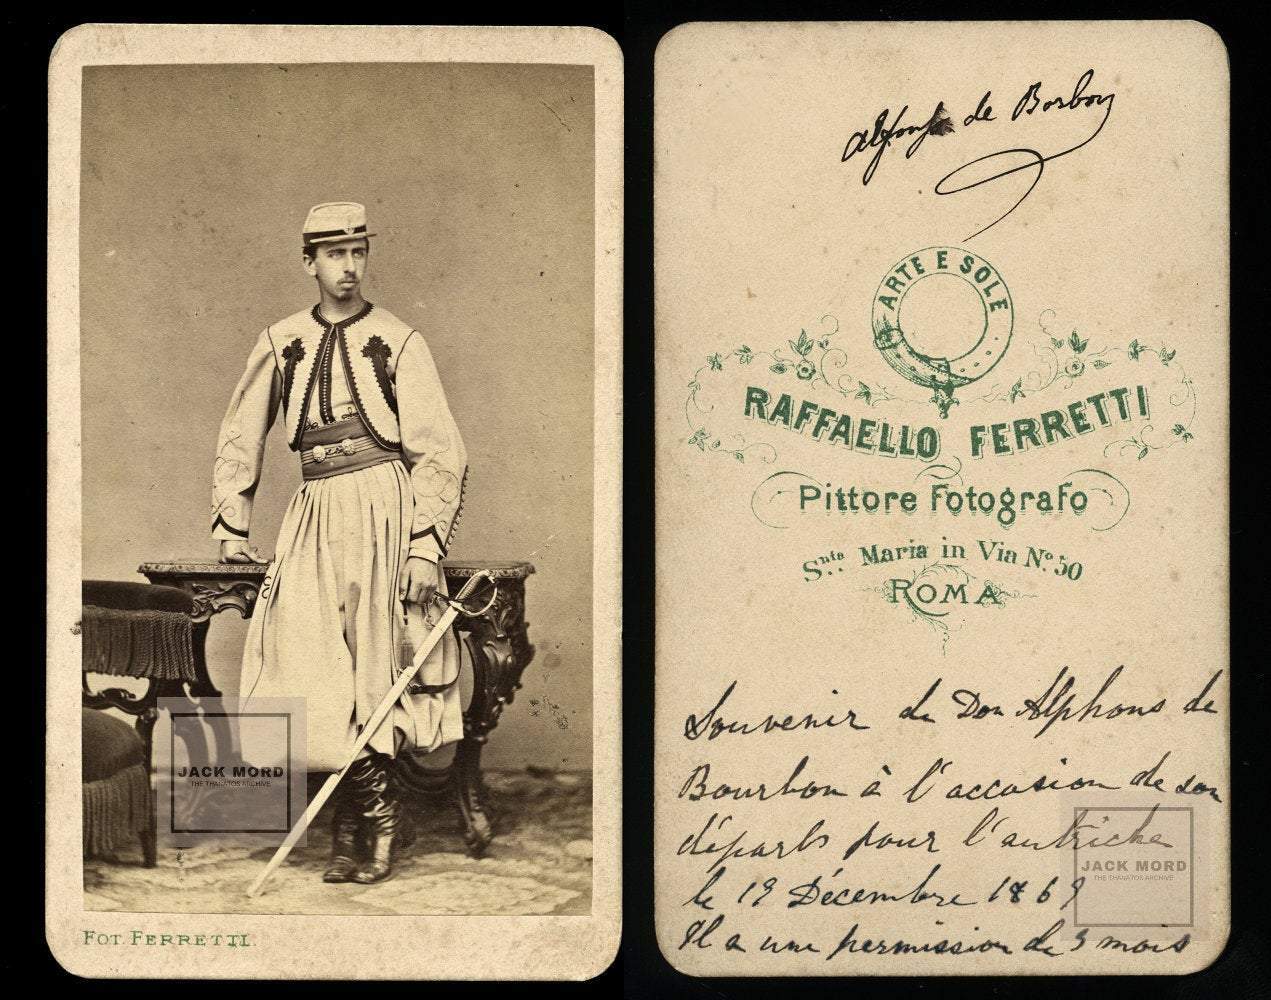 FOT. FERRETTI.
JACK MORD
THE THANATOS ARCHIVE
Alfonso de Borbon
ARTE E SOLE
RAFFAELLO FERRETTI
Pittore Fotografo
Snta Maria in Via No. 50
ROMA
Souvenir de Don Alphons de
Bourbon à l'accasion de son
départs pour l'autriche
le 19 Décembre 1869
Il a une permission de 3 mois
JACK MORD
THE THANATOS ARCHIVE